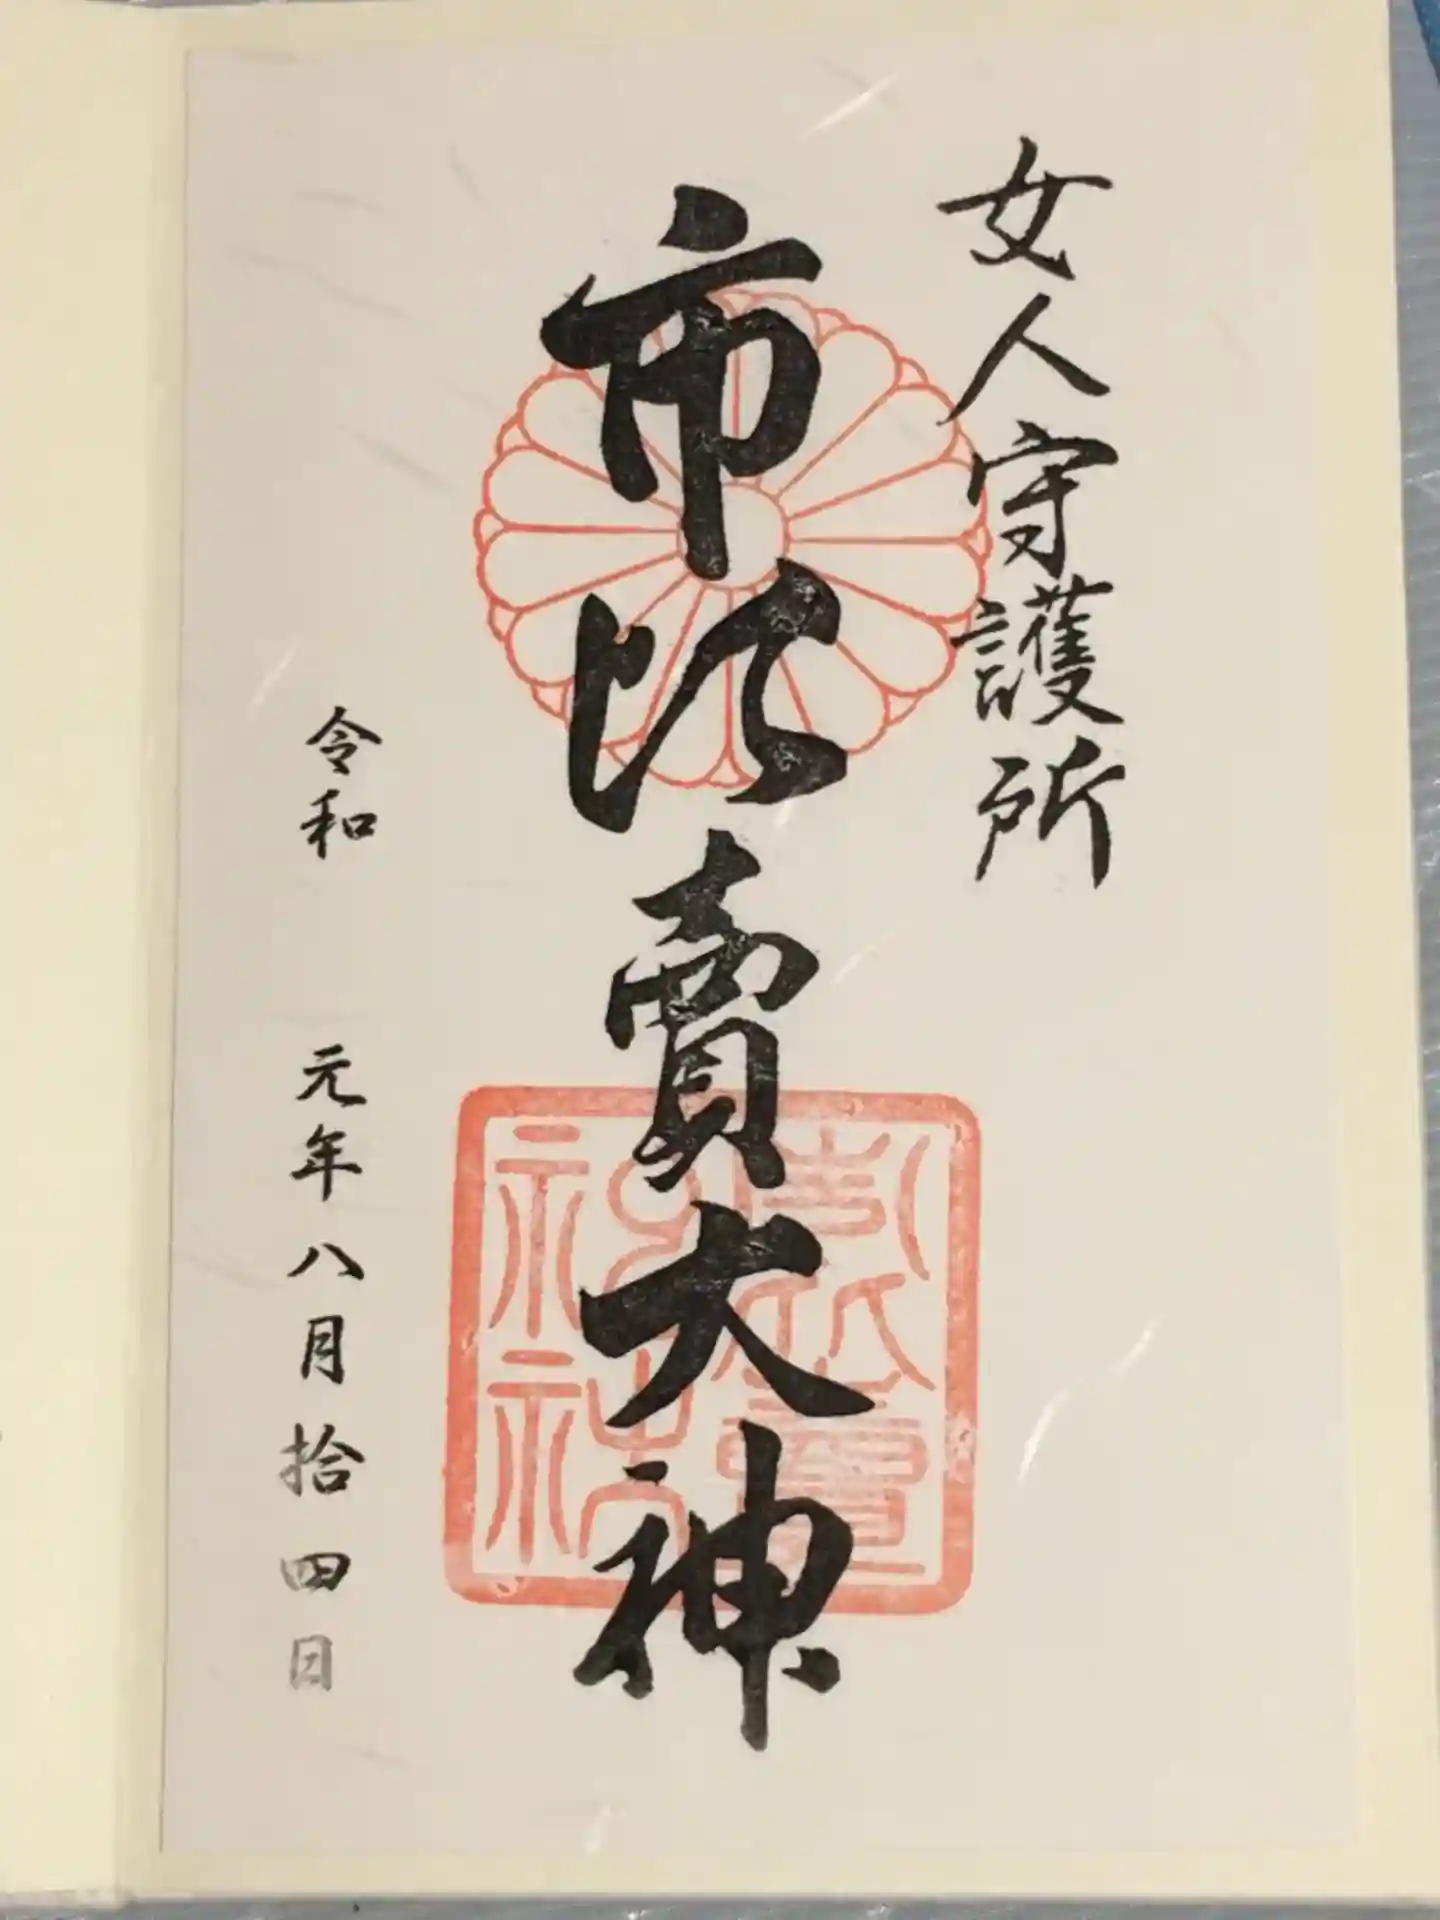 女人守護所
市比賣大神
市比賣
神社
令和 元年八月拾四日